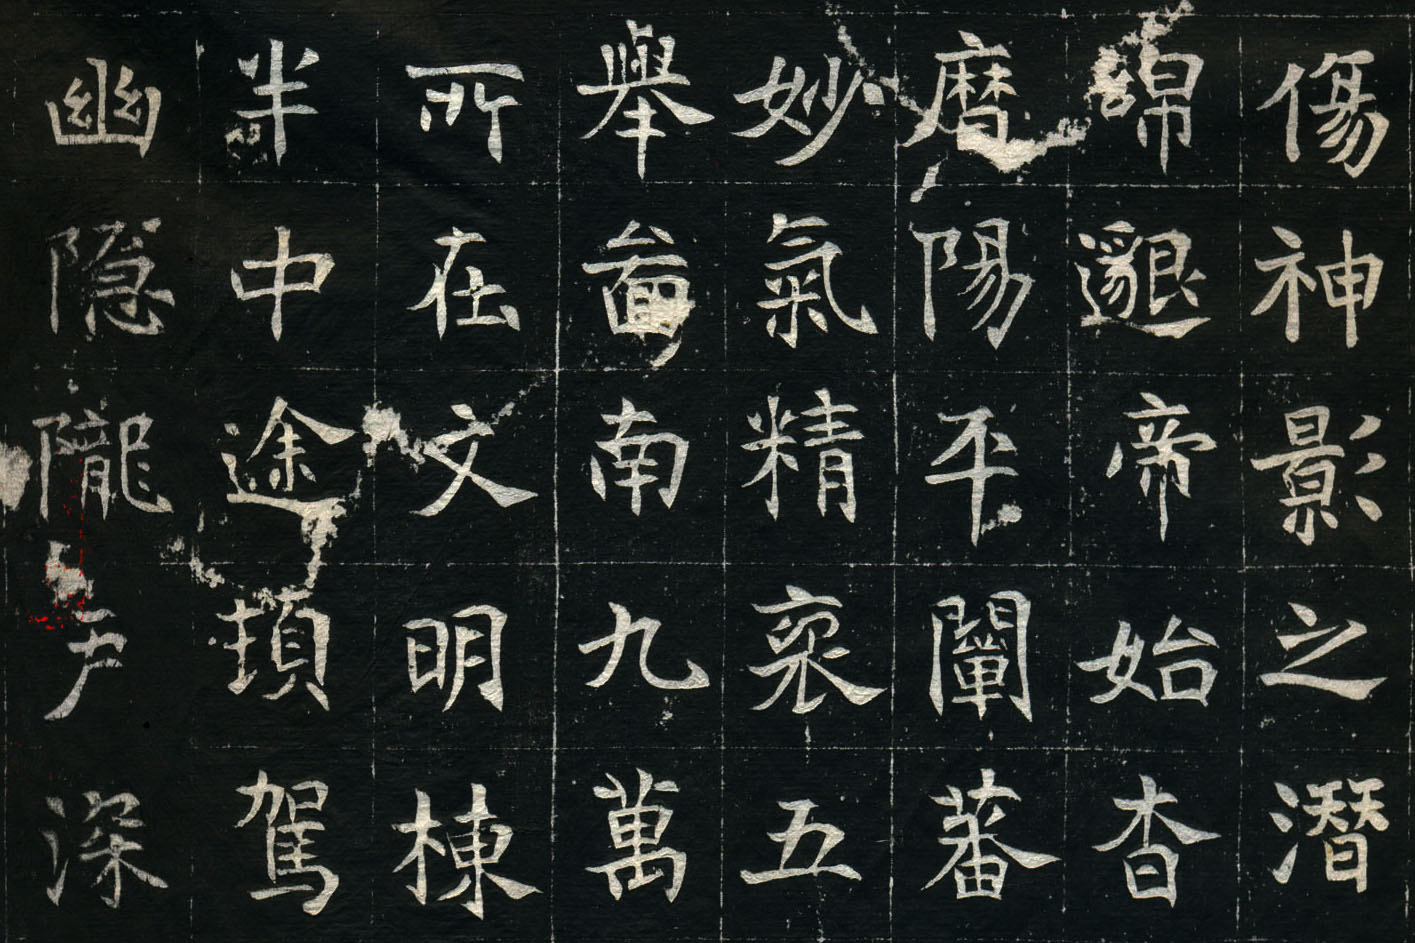 傷神影之潛
綿邈帝始杳
曆陽平闡蕃
妙氣精裒五
舉啚南九萬
所在文明棟
半中途頓駕
幽隐隴戶深